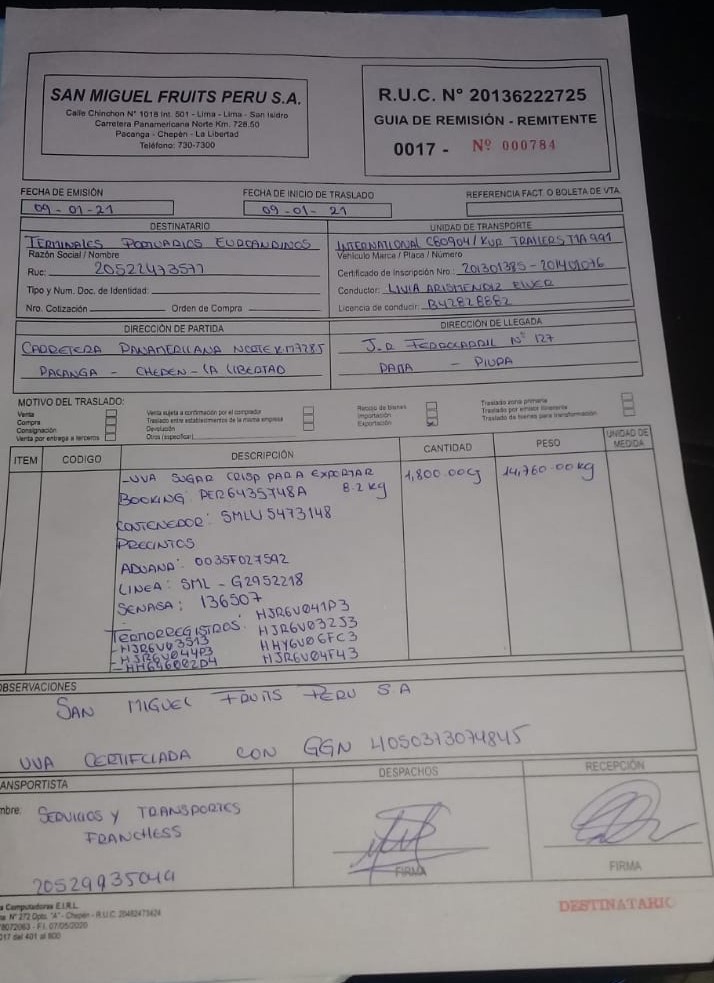 SAN MIGUEL FRUITS PERU S.A.
Calle Chinchon N° 1018 Int. 501 - Lima - Lima - San Isidro
Carretera Panamericana Norte Km. 728.50
Pacanga - Chepén - La Libertad
Teléfono: 730-7300
R.U.C. N° 20136222725
GUIA DE REMISIÓN - REMITENTE
0017 - Nº 000784
FECHA DE EMISIÓN
09-01-21
FECHA DE INICIO DE TRASLADO
09-01-21
REFERENCIA FACT. O BOLETA DE VTA.
DESTINATARIO
TERMINALES PORTUARIOS EUROANDINOS
Razón Social / Nombre
Ruc: 20522473571
Tipo y Num. Doc. de Identidad:
Nro. Cotización Orden de Compra
UNIDAD DE TRANSPORTE
INTERNATIONAL C8O904 / KUR TRAILERS T1A991
Vehículo Marca / Placa / Número
Certificado de Inscripción Nro.: 201301385 - 201401076
Conductor: LIVIA ARISMENDIZ ELVER
Licencia de conducir: B42828882
DIRECCIÓN DE PARTIDA
CARRETERA PANAMERICANA NORTE KM 728.5
PACANGA - CHEPEN - LA LIBERTAD
DIRECCIÓN DE LLEGADA
J.R FERROCARRIL N° 127
PAITA - PIURA
MOTIVO DEL TRASLADO:
Venta
Compra
Consignación
Venta por entrega a terceros
Venta sujeta a confirmación por el comprador
Traslado entre establecimientos de la misma empresa
Devolución
Otros (especificar)
Recojo de bienes
Importación
Exportación
Traslado zona primaria
Traslado por emisor itinerante
Traslado de bienes para transformación
ITEM CODIGO DESCRIPCIÓN CANTIDAD PESO UNIDAD DE MEDIDA
- UVA SUGAR CRISP PARA EXPORTAR 1,800.00 CJ 14,760.00 kg
BOOKING: PER6435748A 8.2 kg
CONTENEDOR: SMLU 5473148
PRECINTOS
ADUANA: 0035F027592
LINEA: SML - G2952218
SENASA: 136507
TERMOREGISTROS: HJR6V041P3
- HJR6V03513 HJR6V032J3
- HJR6V044P3 HHY6V06FC3
HJR6V04F43
OBSERVACIONES
SAN MIGUEL FRUITS PERU S A
UVA CERTIFCIADA CON GGN 4050373074845
TRANSPORTISTA
Nombre: SERVICIOS Y TRANSPORTES
FRANCHESS
20529935049
DESPACHOS
FIRMA
RECEPCIÓN
FIRMA
Computadoras E.I.R.L.
N° 272 Dpto. "A" - Chepén - R.U.C. 20482473424
F.I. 07/05/2020
017 del 401 al 800
DESTINATARIO